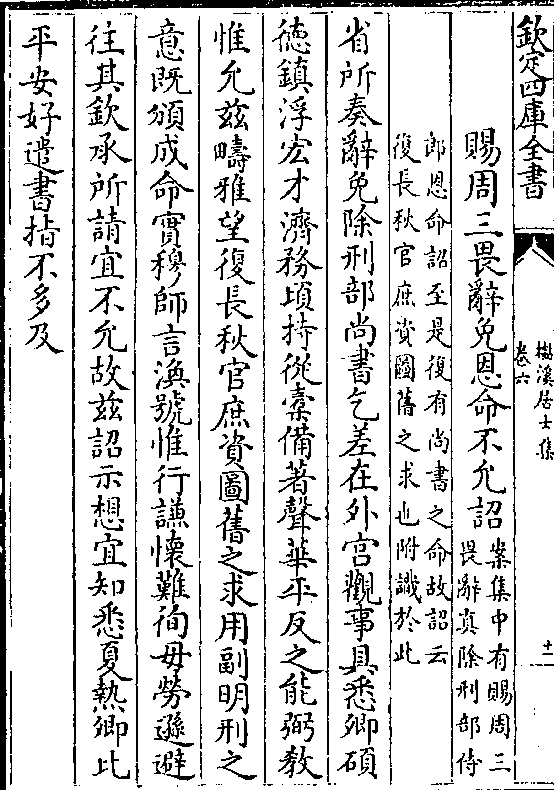 欽定四庫全書
檆溪居士集
卷六
十一
賜周三畏辭免恩命不允詔案集中有賜周三
畏辭真除刑部侍
郎恩命詔至是復有尚書之命故詔云
復長秋官庶資圖舊之求也附識於此
省所奏辭免除刑部尚書乞差在外宫觀事具悉卿碩
徳鎮浮宏才濟務頃持從槖備著聲華平反之能弼教
惟允兹疇雅望復長秋官庶資圖舊之求用副明刑之
意既頒成命實穆師言渙號惟行謙懷難徇毋勞遜避
往其欽承所請宜不允故兹詔示想宜知悉夏熱卿比
平安好遣書指不多及